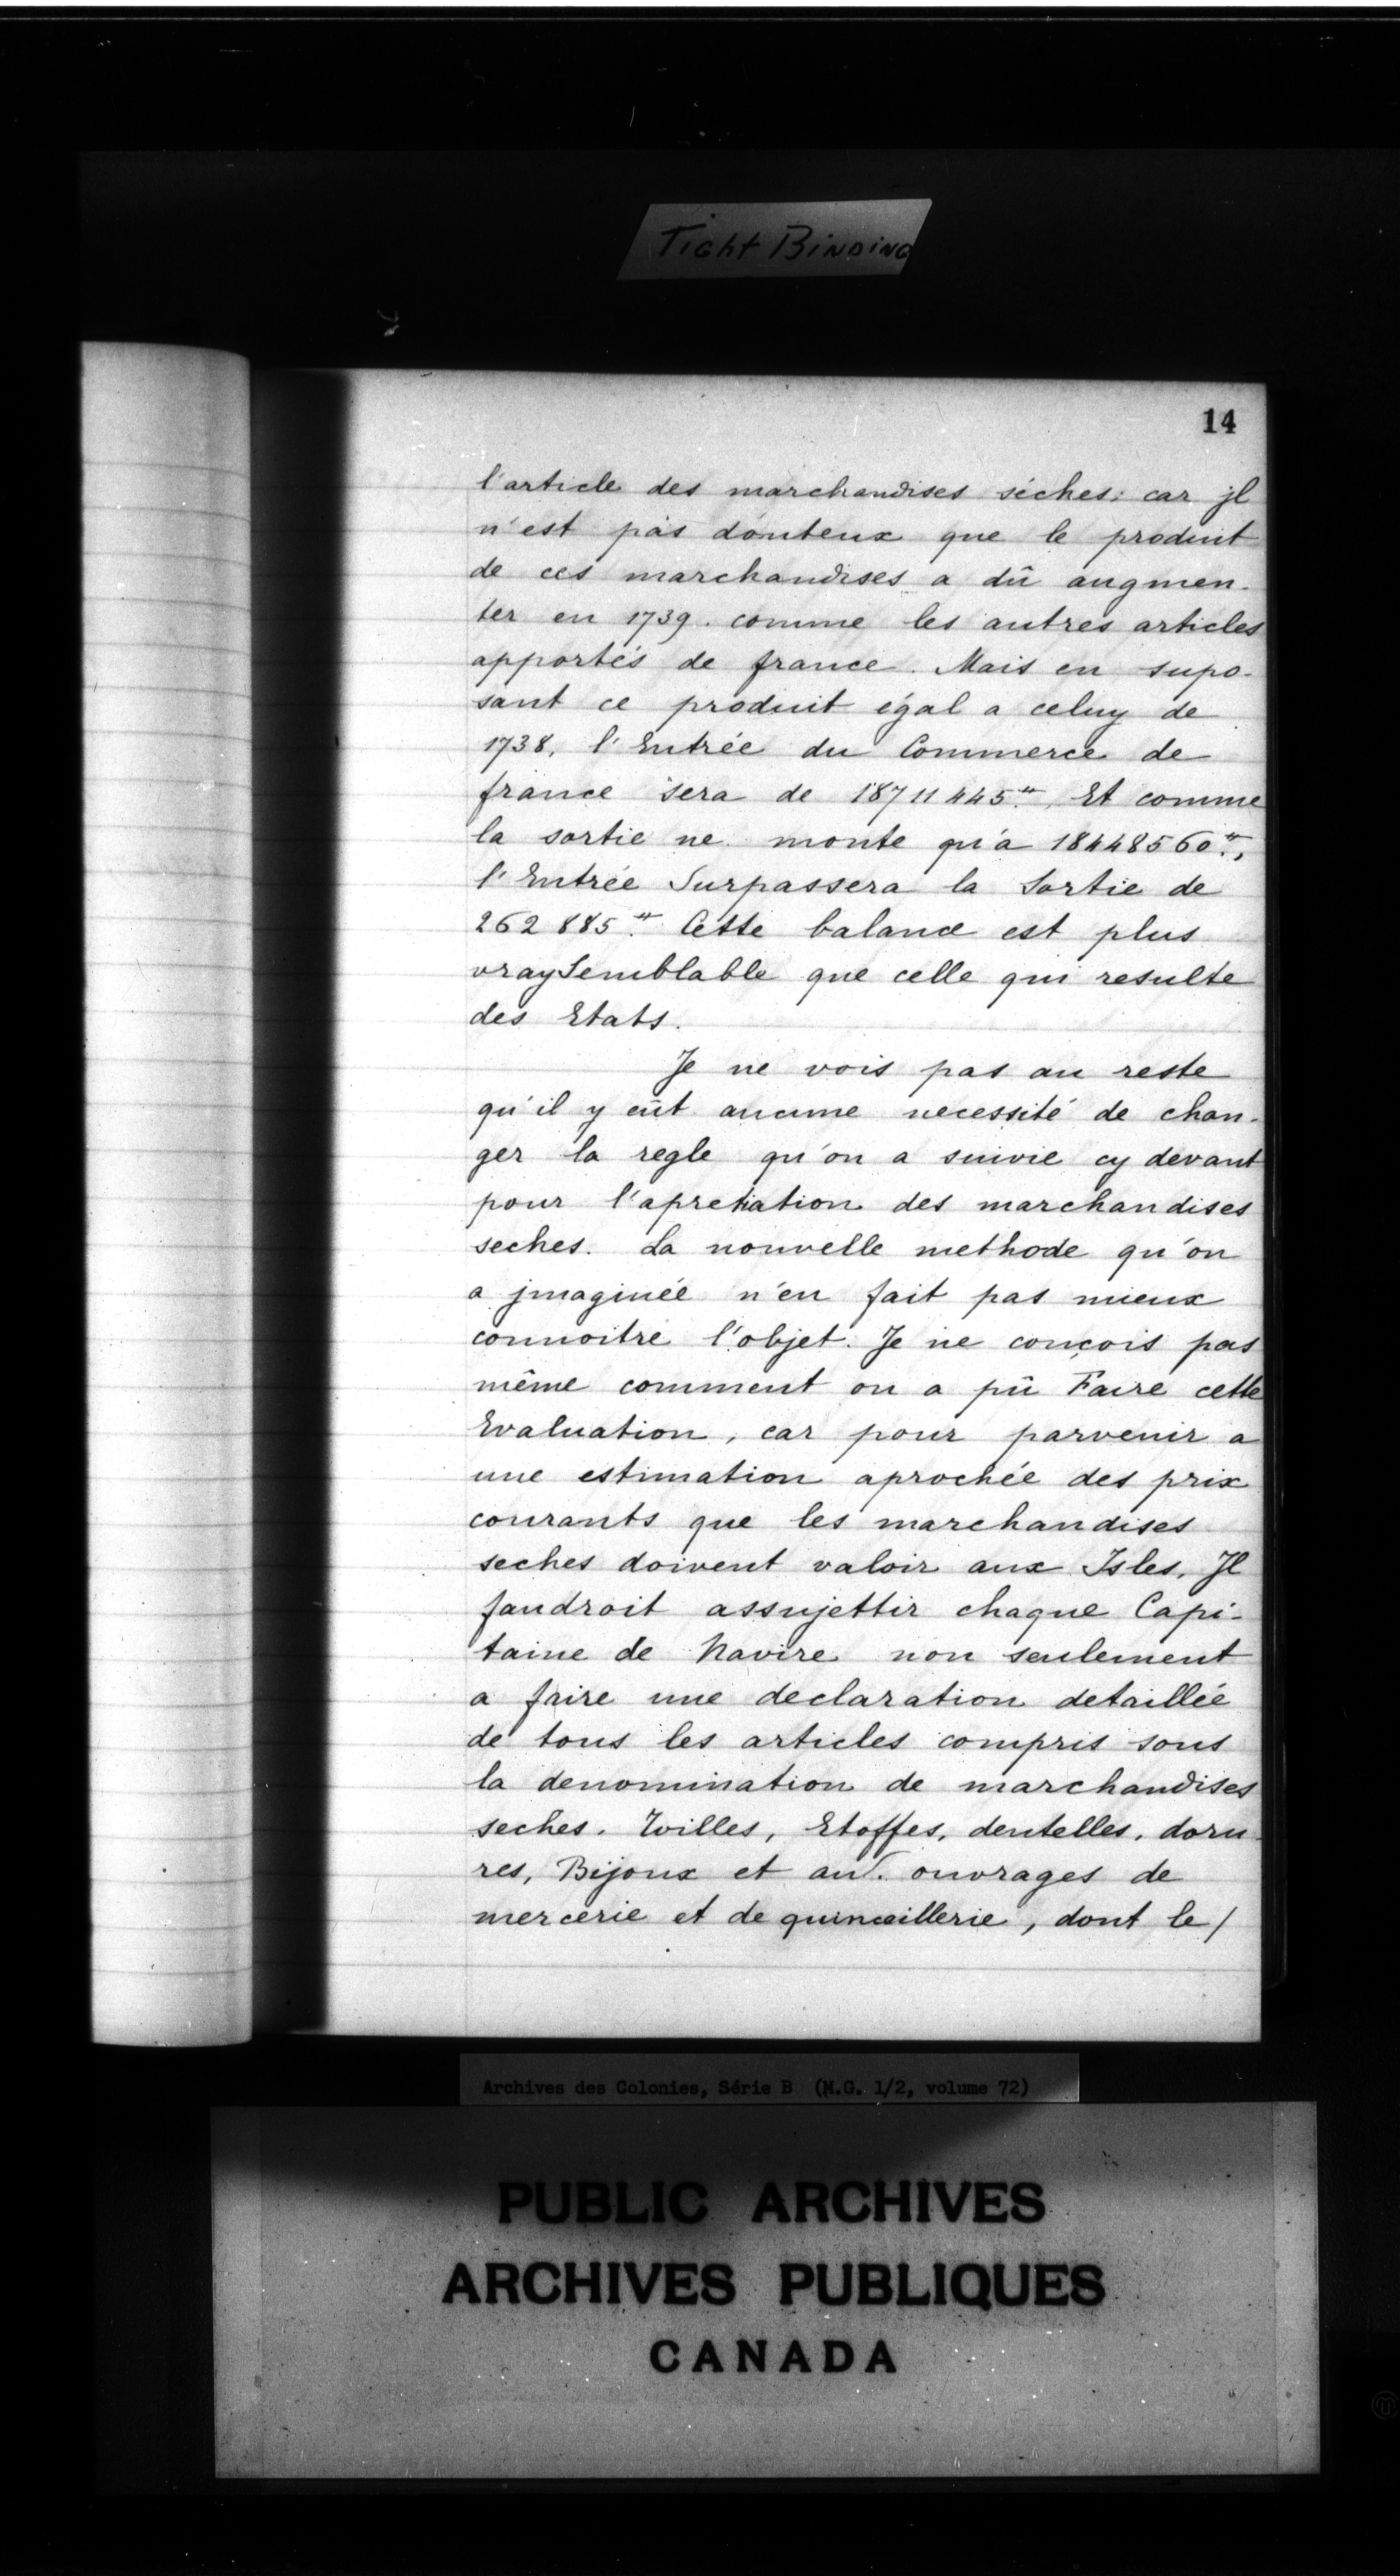 Tight Binding
14
l'article des marchandises séches: car jl
n'est pas douteux que le produit
de ces marchandises a dû augmen-
ter en 1739. comme les autres articles
apportés de france. Mais en supo-
sant ce produit égal a celuy de
1738, l'Entrée du Commerce de
france sera de 18711445.tt Et comme
la sortie ne monte qu'a 18448560.tt,
l'Entrée Surpassera la Sortie de
262885.tt Cette balance est plus
vraySemblable que celle qui resulte
des Etats.
Je ne vois pas au reste
qu'il y eût aucune necessité de chan-
ger la regle qu'on a suivie cy devant
pour l'apretiation des marchandises
seches. La nouvelle methode qu'on
a jmaginée n'en fait pas mieux
connoitre l'objet. Je ne conçois pas
même comment on a pû Faire cette
Evaluation, car pour parvenir a
une estimation aprochée des prix
courants que les marchandises
seches doivent valoir aux Isles, Jl
faudroit assujettir chaque Capi-
taine de Navire non seulement
a faire une declaration detaillée
de tous les articles compris sous
la denomination de marchandises
seches. Toilles, Etoffes, dentelles, doru-
res, Bijoux et ouvrages de
mercerie et de quincaillerie, dont le/
Archives des Colonies, Série B (M.G. 1/2, volume 72)
PUBLIC ARCHIVES
ARCHIVES PUBLIQUES
CANADA